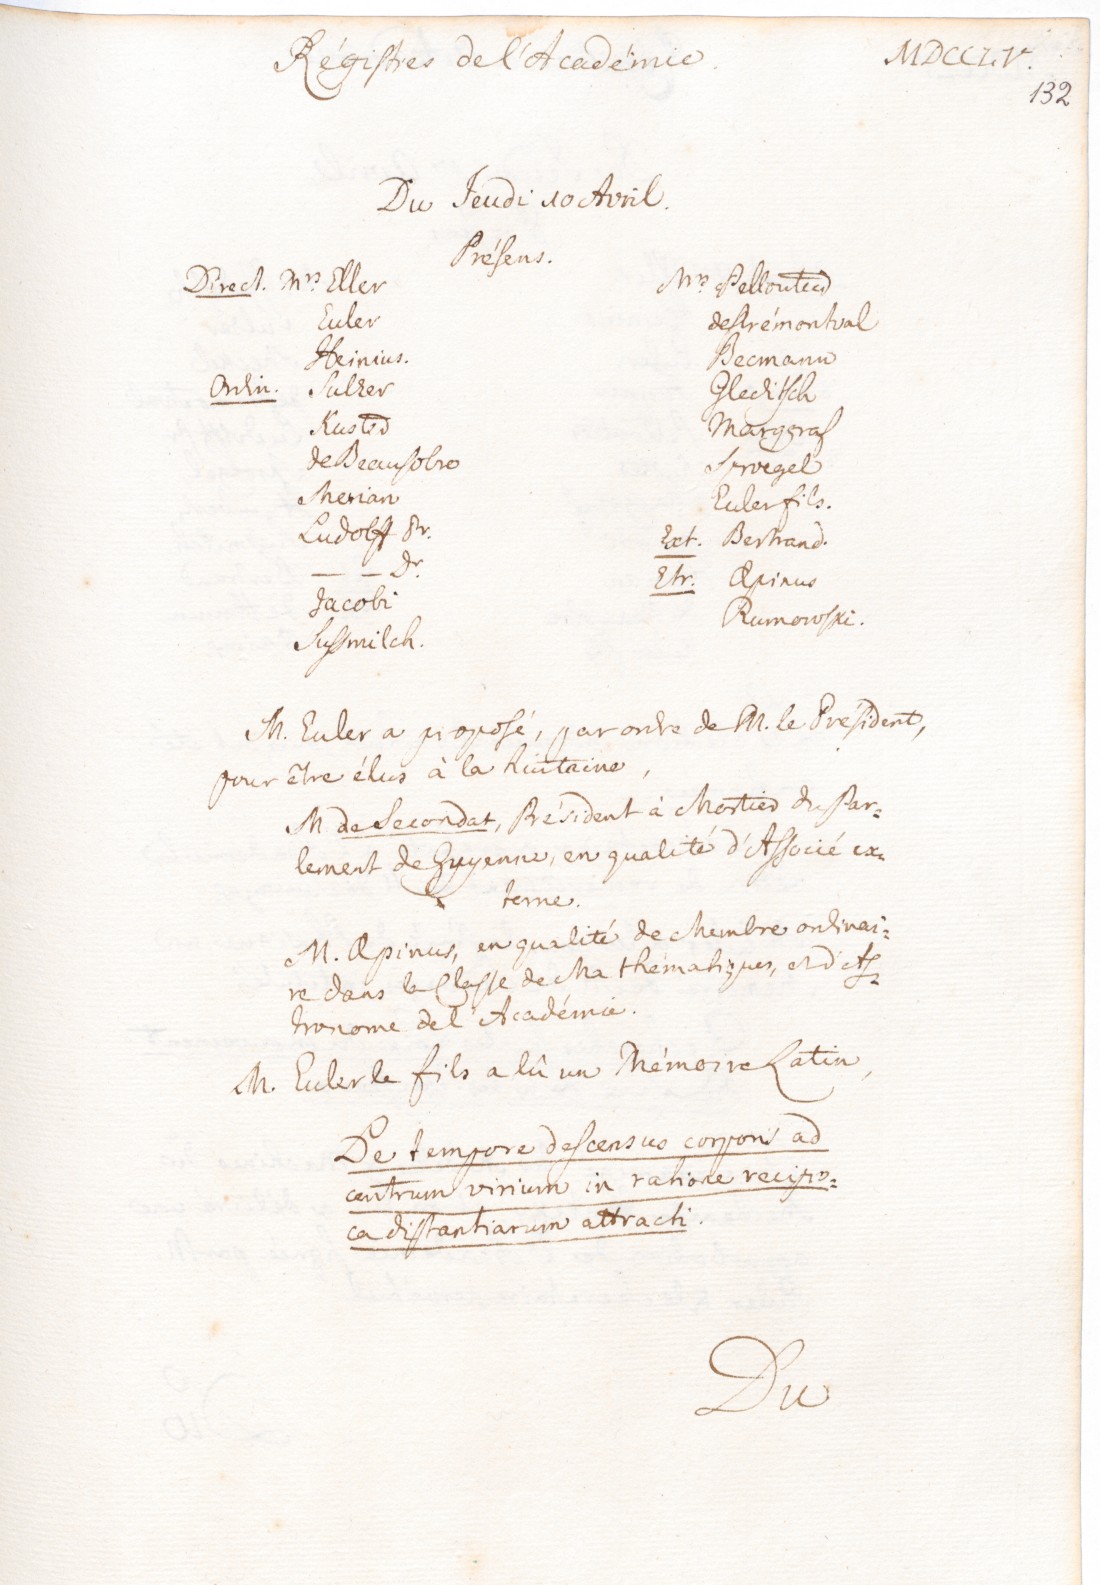 Régistres de l'Académie.
MDCCLV.
132
Du Jeudi 10 Avril.
Présens.
Direct. Mrs Eller
Euler
Heinius.
Ordin. Sulzer
Kuster
de Beausobre
Merian
Ludolff Pr.
— — Dr.
Jacobi
Sussmilch.
Mrs Pelloutier
de Prémontval
Becmann
Gleditsch
Marggraf
Sprögel
Euler fils.
Ext. Bertrand.
Etr. Æpinus
Rumowski.
M. Euler a proposé, par ordre de M. le Président,
pour être élus à la huitaine,
M de Secondat, Président à Mortier du Par=
lement de Guyenne, en qualité d'Associé ex=
terne.
M. Æpinus, en qualité de Membre ordinai=
re dans la Classe de Mathématiques, et d'As=
tronome de l'Académie.
M. Euler le fils a lû un Mémoire Latin,
De tempore descensus corporis ad
centrum virium in ratione recipro=
ca distantiarum attracti.
Du